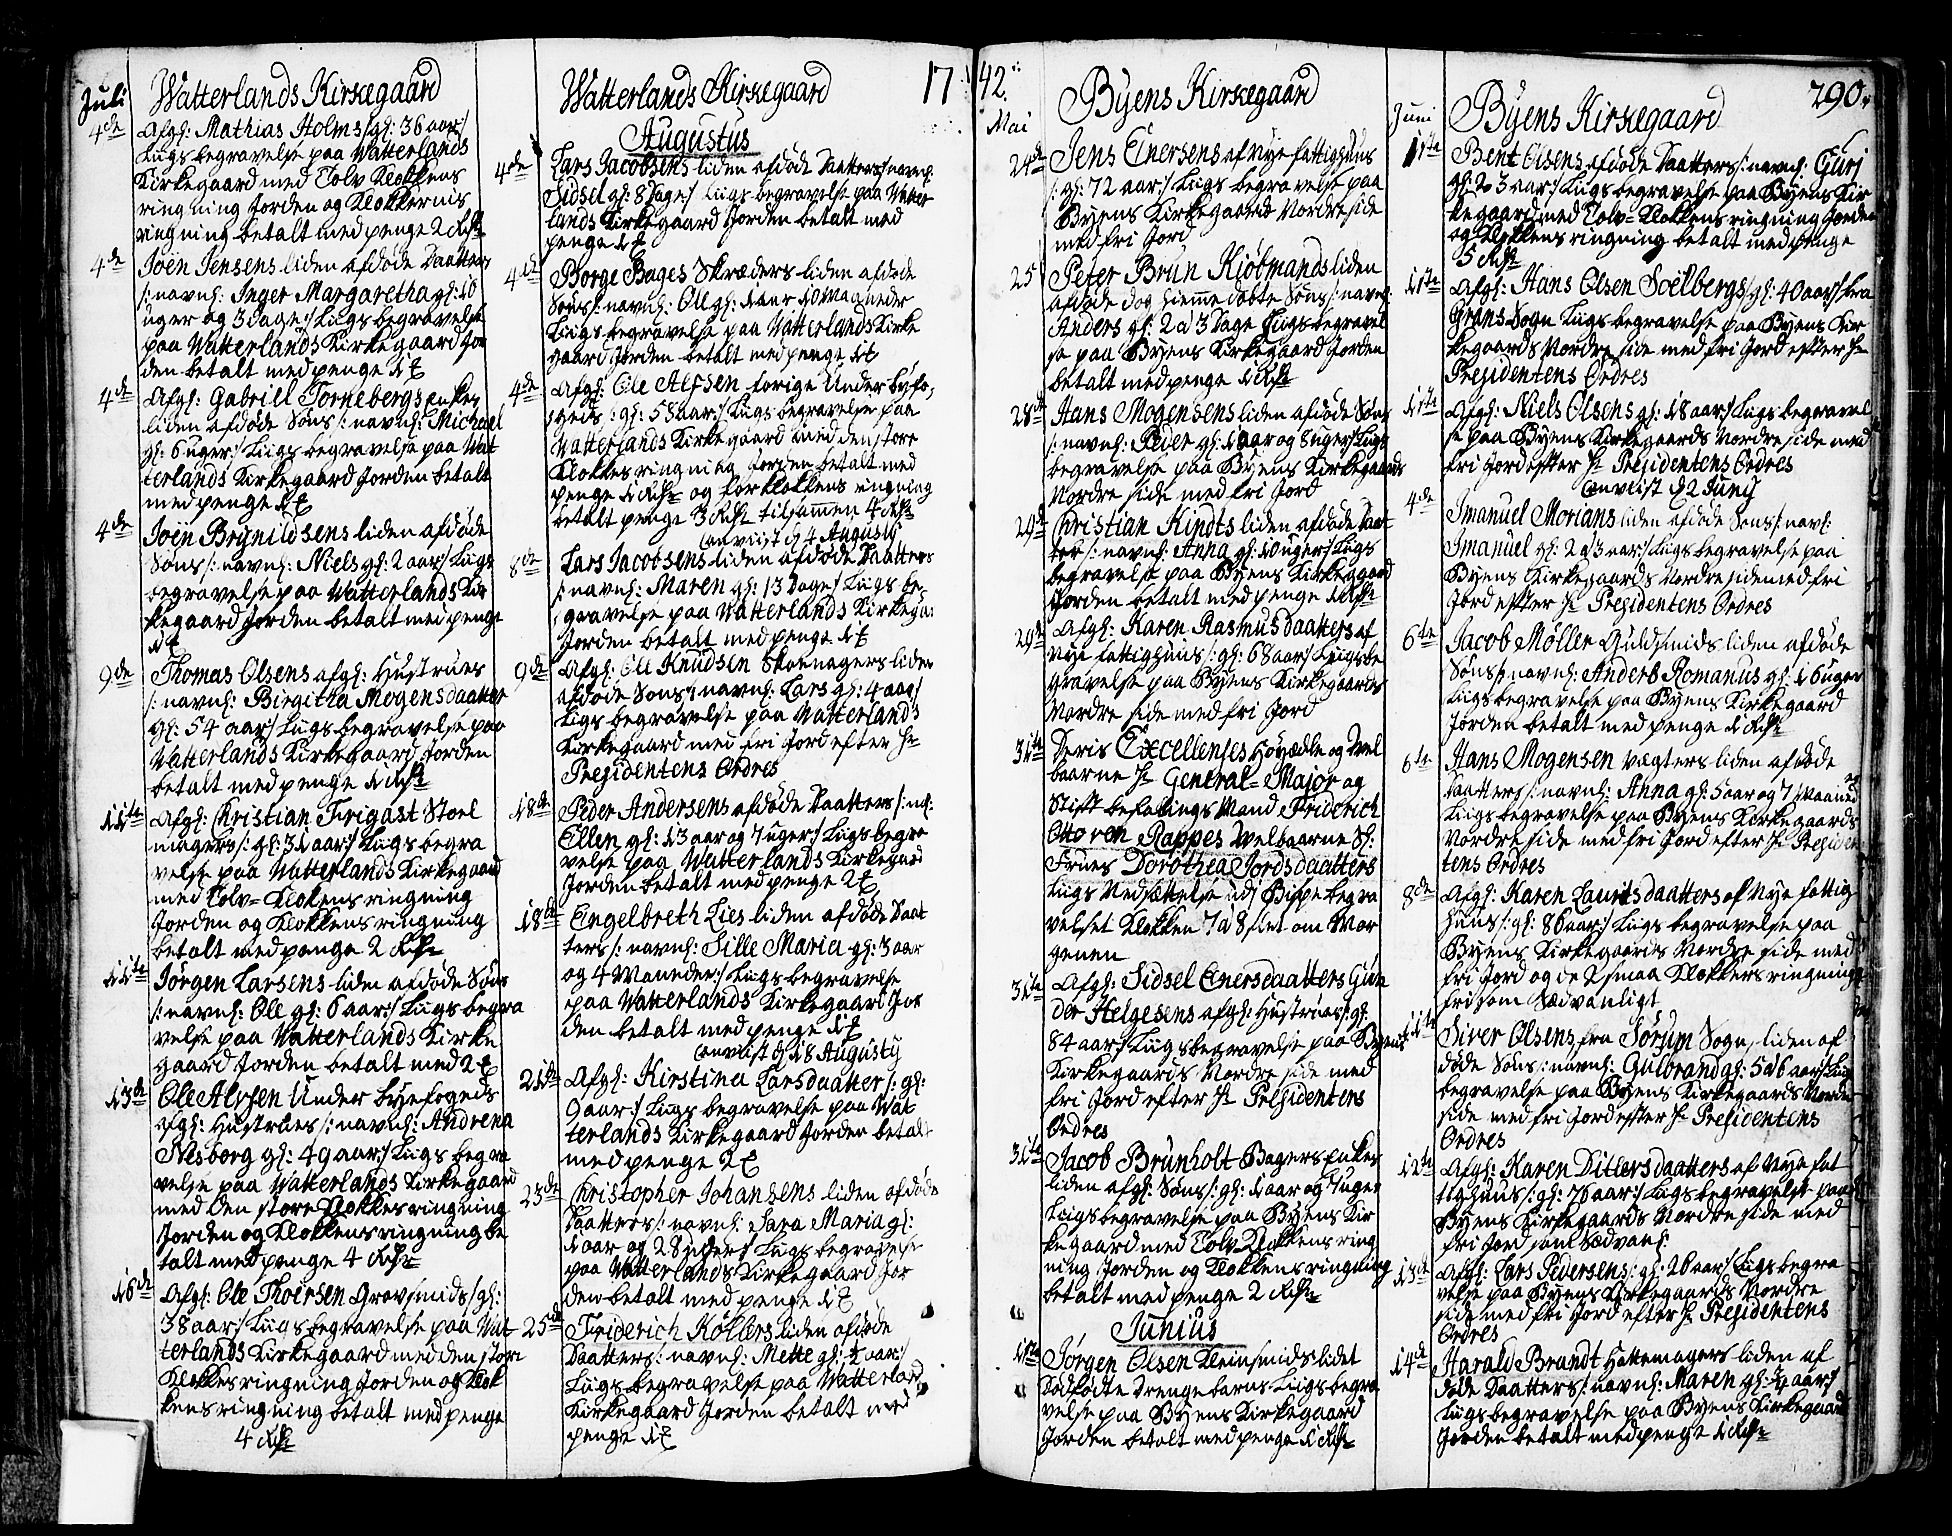 Juli
Watterlands Kirkegaard
4de
Afgl: Mathias Holms /: gl: 36 aar:/
Liigs begravelse paa Watterlands
Kirkegaard med Tolv Klokkens
ringning Jorden og Klokkernis
ringning betalt med penge 2 Rdr
4de
Joen Jensens liden afdøde Daatters
/: navnl: Inger Margaretha gl: 10
uger og 3 dage:/ Liigs begravelse
paa Watterlands Kirkegaard Jor
den betalt med penge 1 ℔
4de
Afgl: Gabriell Tornebergs enkes
liden afdøde Søns /: navnl: Michael
gl: 6 uger:/ Liigs begravelse paa Wat
terlands Kirkegaard Jorden betalt
med penge 1 ℔
4de
Joen Brynildsens liden afdøde
Søns /: navnl: Niels gl: 2 aar:/ Liigs
begravelse paa Watterlands Kir
kegaard Jorden betalt med penge
1 ℔
9de
Thomas Olsens afgl: Hustrues
/: navnl: Birgitha Mogensdaatter
gl: 54 aar:/ Liigs begravelse paa
Watterlands Kirkegaard Jorden
betalt med penge 1 Rdr
11te
Afgl: Christian Firigast Stoel
magers /: gl: 31 aar:/ Liigs begra
velse paa Watterlands Kirkegaard
med Tolv-Klokens ringning
Jorden og Klokkens ringning
betalt med penge 2 Rdr
11te
Jørgen Larsens liden afdøde Søns
/: navnl: Ole gl: 6 aar:/ Liigs begra
velse paa Watterlands Kirke
gaard Jorden betalt med 2 ℔
13de
Ole Alfsen Under byefogeds
afgl: Hustrues /: navnl: Andrena
Nesborg gl: 49 aar:/ Liigs begra
velse paa Watterlands Kirkegaard
med den store Klokkes ringning
Jorden og Klokkens ringning be
talt med penge 4 Rdr
16de
Afgl: Ole Thoersen Grovsmids /: gl:
38 aar:/ Liigs begravelse paa Wat
terlands Kirkegaard med den store
Klokkes ringning Jorden og Klok
kens ringning betalt med penge
4 Rdr
Watterlands Kirkegaard
17
Augustus
4de
Lars Jacobsens liden afdøde Daatters /: navnl:
Sidsel gl: 8 Dage:/ Liigs begravelse paa Watter
lands Kirkegaard Jorden betalt med
penge 1 ℔
4de
Borge Bages Skræders liden afdøde
Søns /: navnl: Ole gl: 1 aar 10 Maaneder
Liigs begravelse paa Watterlands Kirke
gaard Jorden betalt med penge 1 ℔
4de
Afgl: Ole Alfsen forige Under byfo,
geds /: gl: 58 aar:/ Liigs begravelse paa
Watterlands Kirkegaard med den store
Klokkes ringning Jorden betalt med
penge 1 Rdr og for klokkens ringning
betalt penge 3 Rdr tilsammen 4 Rdr
anviist d 4 Augusty
8de
Lars Jacobsens liden afdøde Daatters
/: navnl: Maren gl: 13 Dage:/ Liigs be,
gravelse paa Watterlands Kirkega:
Jorden betalt med penge 1 ℔
9de
Afgl: Ole Knudsen Skoemagers liden
afdøde Søns /: navnl: Lars gl: 4 aar:/
Liigs begravelse paa Watterlands
Kirkegaard med fri Jord efter Hr
Presidentens Ordres
18de
Peder Andersens afdøde Daatters /: nl:
Ellen gl: 13 aar og 7 uger:/ Liigs begra
velse paa Watterlands Kirkegaard
Jorden betalt med penge 2 ℔
18de
Engelbreth Lies liden afdøde Daat
ters /: navnl: Sille Maria gl: 3 aar
og 4 Maaneder:/ Liigs begravelse
paa Watterlands Kirkegaard Jor
den betalt med penge 1 ℔
anviist d 18 Augusty
21de
Afgl: Kirstina Larsdaatter /: gl:
9 aar:/ Liigs begravelse paa Wat
terlands Kirkegaard Jorden betalt
med penge 2 ℔
23de
Christopher Johansens liden afdøde
Daatters /: navnl: Sara Maria gl:
1 aar og 28 uger:/ Liigs begravelse
paa Watterlands Kirkegaard Jor
den betalt med penge 1 ℔
25de
Friderich Køllers liden afdøde
Daatters /: navnl: Mette gl: ½ aar:/
Liigs begravelse paa Watterlands
Kirkegaard Jorden betalt med
penge 1 ℔
42.
Mai
Byens Kirkegaard
24de
Jens Enersens af Nye fattighuus
/: gl: 72 aar:/ Liigs begravelse paa
Byens Kirkegaards Nordre side
med fri Jord
25
Peter Brun Kiøbmands liden
afdøde dog hiemme døbte Søns /: navnl:
Anders gl: 2 a 3 Dage Liigs begravel
se paa Byens Kirkegaard Jorden
betalt med penge 1 Rdr
28de
Hans Mogensens liden afdøde Søns
/: navnl: Peder gl: 1 aar og 8 uger:/ Liigs
begravelse paa Byens Kirkegaards
Nordre side med fri Jord
29de
Christian Kindts liden afdøde Daat
ter /: navnl: Anna gl: 10 uger:/ Liigs
begravelse paa Byens Kirkegaard
Jorden betalt med penge 1 Rdr
29de
Afgl: Karen Rasmusdaatters af
Nye fattighuus /: gl: 68 aar:/ Liigs be
gravelse paa Byens Kirkegaards
Nordre side med fri Jord
31te
Deris Excellenses Høyædle og Vel
baarne Hr General-Major og
Stift befalings Mand Friderich
Otto von Rappes Velbaarne Sl:
Frues Dorothea Jordsdaatters
Liigs Nedsættelse udj Bispe begra
velset Klokken 7 a 8 slet om Mor
genen
31te
Afgl: Sidsel Enersdaatters Gun
der Helgesens afgl: Hustrues /: gl:
84 aar:/ Liigs begravelse paa Byens
Kirkegaards Nordre side med
fri Jord efter Hr Presidentens
Ordres
31te
Jacob Brunholt Bagers enkes
liden afgl: Søns /: gl: 1 aar og 7 uger
Liigs begravelse paa Byens Kir
kegaard med Tolv-Klokkens ring
ning Jorden og Klokkens ringning
betalt med penge 2 Rdr
Junius
1ste
Jørgen Olsen Kleinsmids lidet
Dødfødte Drenge barns Liigs begra
velse paa Byens Kirkegaard
Jorden betalt med penge 1 Rdr
290.
Juni
Byens Kirkegaard
1ste
Bent Olsens afdøde Daatters /: navnl: Gurj
gl: 23 aar:/ Liigs begravelse paa Byens Kir
kegaard med Tolv-Klokkens ringning Jorden
og Klokkens ringning betalt med penge
5 Rdr
1ste
Afgl: Hans Olsen Soelbergs /: gl: 40 aar:/ fra
Grans Sogn Liigs begravelse paa Byens Kir
kegaards Nordre side med fri Jord efter Hr
Presidentens Ordres
1ste
Afgl: Niels Olsens gl: 18 aar:/ Liigs begravel
se paa Byens Kirkegaards Nordre side med
fri Jord efter Hr Presidentens Ordres
anviist d 2 Juny
4de
Imanuel Morians liden afdøde Søns /: navl:
Imanuel gl: 2 a 3 aar:/ Liigs begravelse paa
Byens Kirkegaards Nordre side med fri
Jord efter Hr Presidentens Ordres
6te
Jacob Møller Guldsmids liden afdøde
Søns /: navnl: Anders Romanus gl: 16 uger
Liigs begravelse paa Byens Kirkegaard
Jorden betalt med penge 1 Rdr
6te
Hans Mogensen Vægters liden afdøde
Daatters /: navnl: Anna gl: 5 aar og 7 Maaned
Liigs begravelse paa Byens Kirkegaards
Nordre side med fri Jord efter Hr Presiden
tens Ordres
8de
Afgl: Karen Lauritsdaatters af Nye fattig
huus /: gl: 86 aar:/ Liigs begravelse paa
Byens Kirkegaards Nordre side med
fri Jord og de 2 smaa Klokkers ringning
fri som Sædvanligt
11te
Siver Olsens fra Sørum Sogn, liden af
døde Søns /: navnl: Gulbrand gl: 5 a 6 aar:/ Liigs
begravelse paa Byens Kirkegaards Nordre
side med fri Jord efter Hr Presidentens
Ordres
12te
Afgl: Karen Ditlersdaatters af Nye fat
tighuus /: gl: 76 aar:/ Liigs begravelse paa
Byens Kirkegaards Nordre side med
fri Jord som Sædvanl:
13de
Afgl: Lars Pedersens /: gl: 26 aar:/ Liigs begra
velse paa Byens Kirkegaards Nordre
side med fri Jord efter Hr Presidentens
Ordres
14de
Harald Brandt Hattemagers liden af
døde Daatters /: navnl: Maren gl: ¼ aar:/
Liigs begravelse paa Byens Kirkegaard
Jorden betalt med penge 1 Rdr